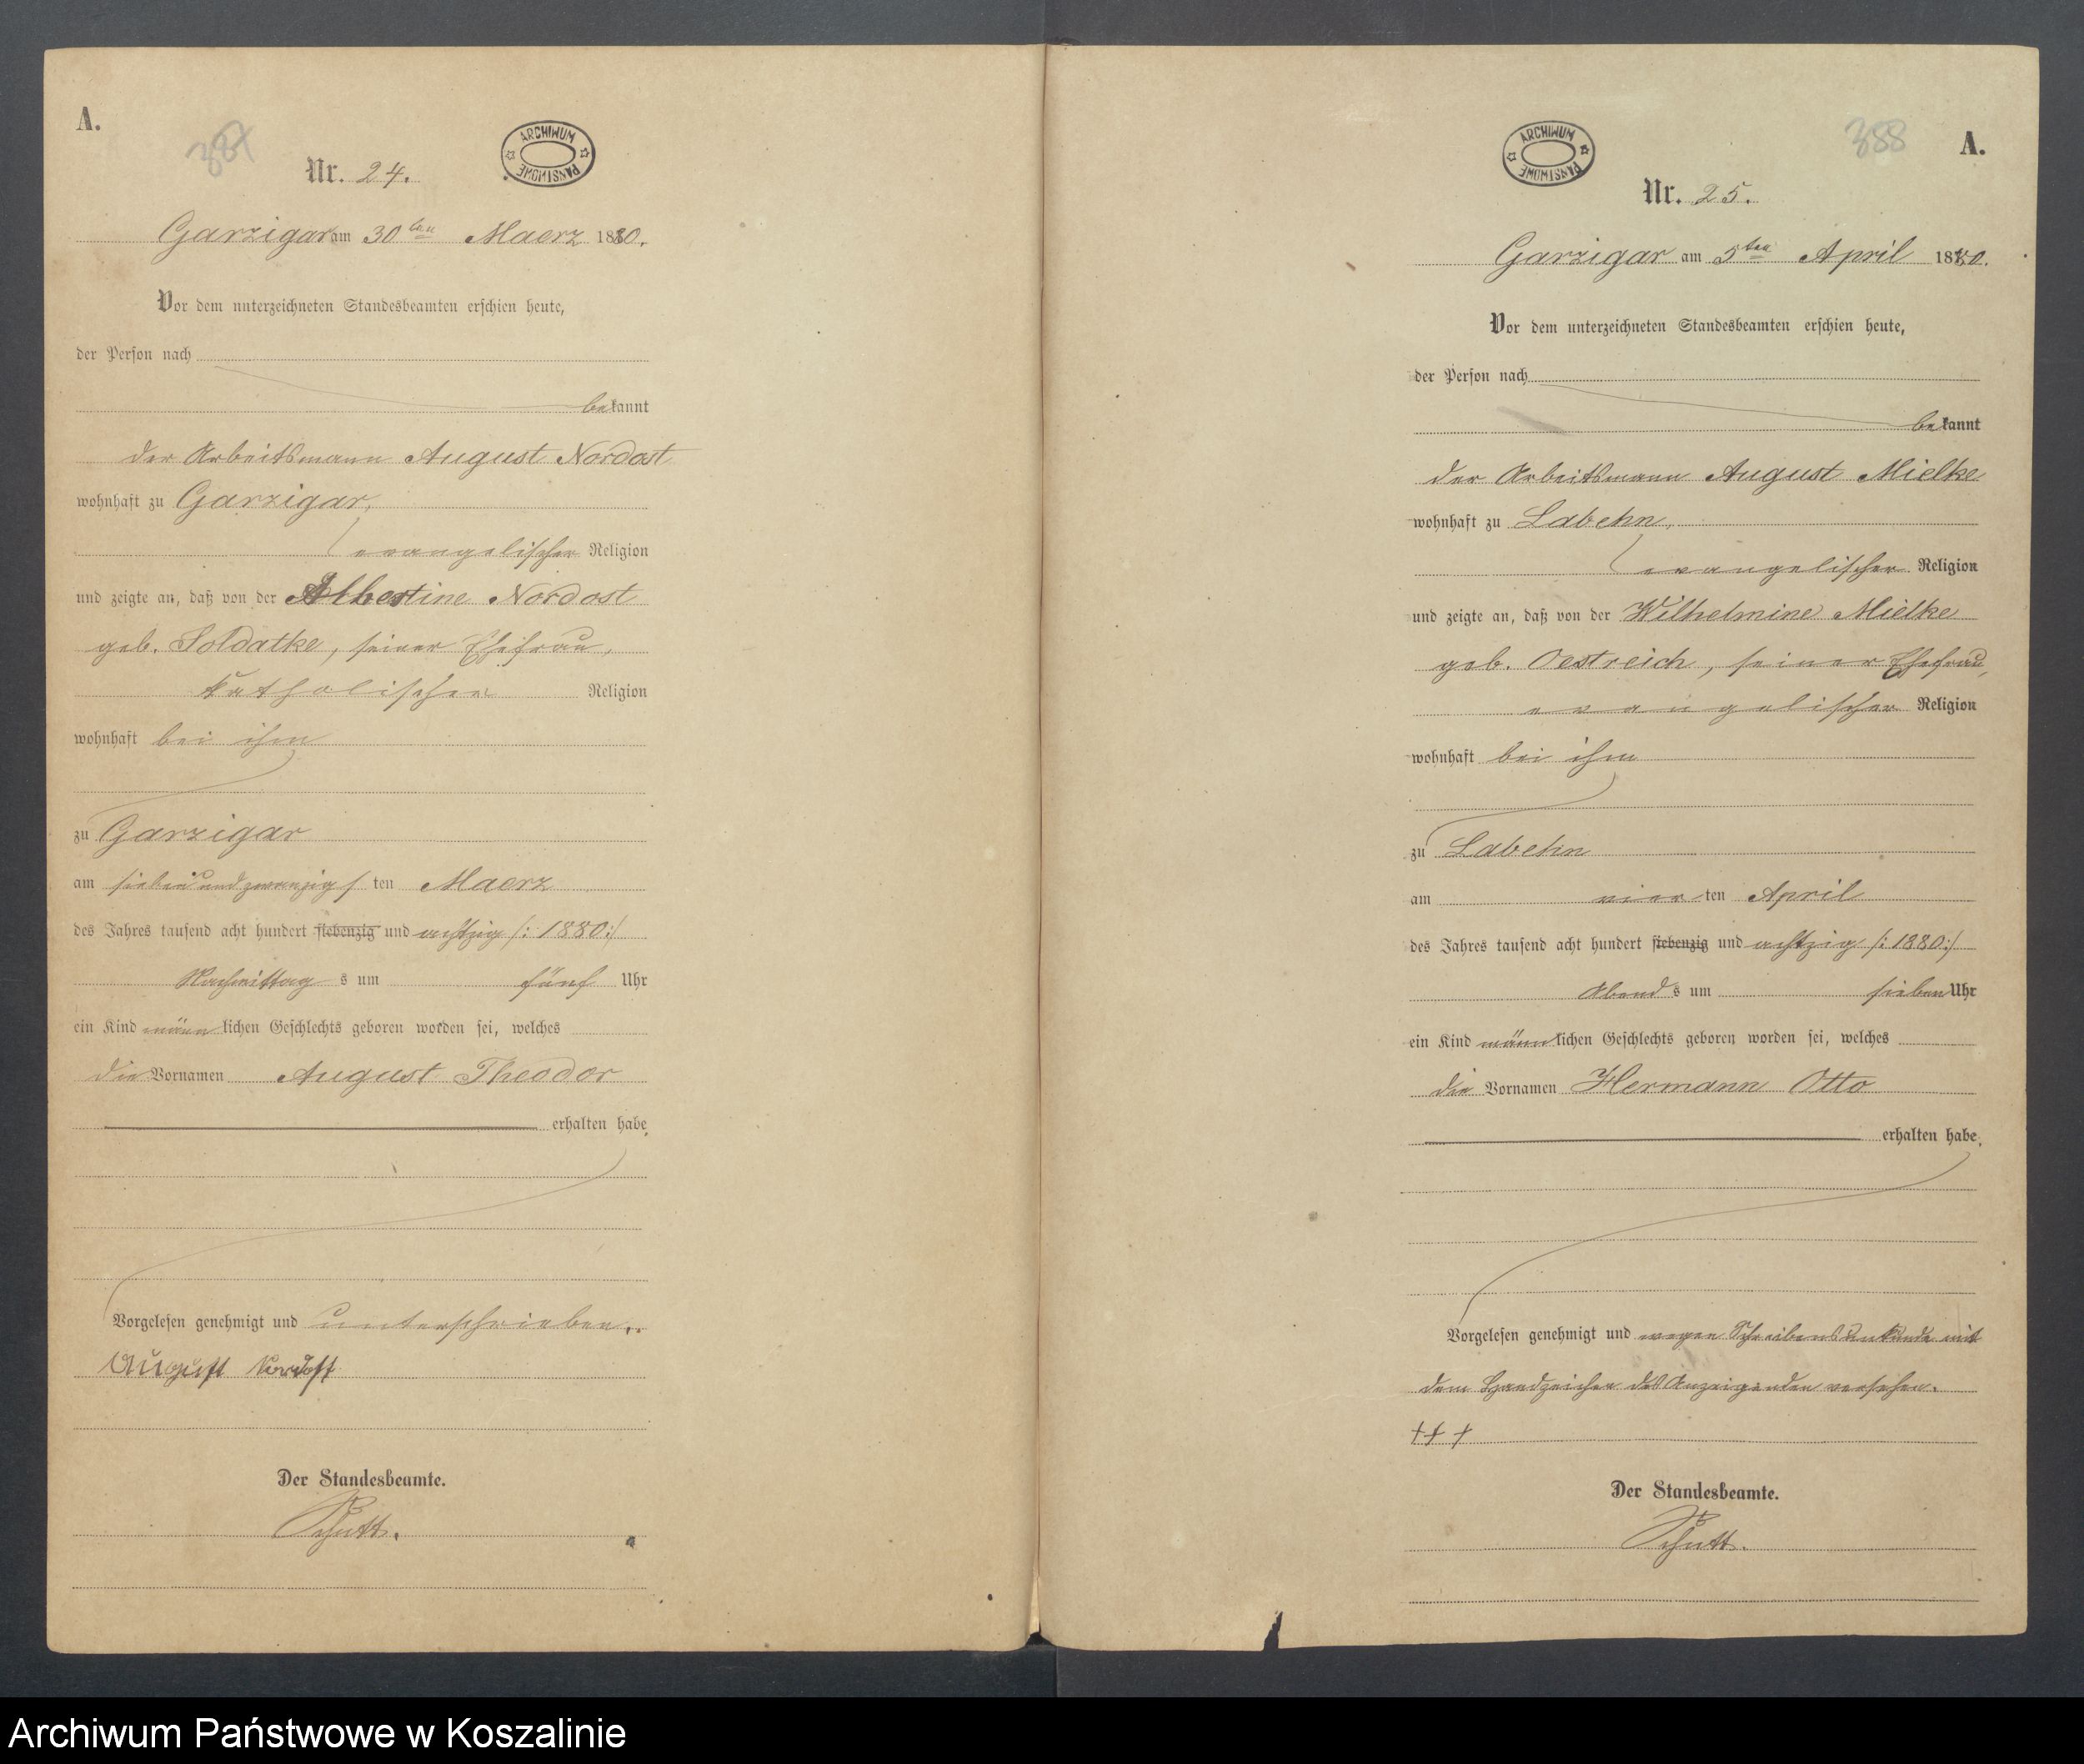 A.
387
Nr. 24.
ARCHIWUM PAŃSTWOWE
Garzigar am 30ten Maerz 1880.
Vor dem unterzeichneten Standesbeamten erschien heute,
der Person nach
bekannt
der Arbeitsmann August Nordost
wohnhaft zu Garzigar,
evangelischer Religion
und zeigte an, daß von der Albertine Nordost
geb. Soldatke, seiner Ehefrau,
katholischer Religion
wohnhaft bei ihm
zu Garzigar
am sieben und zwanzigsten Maerz
des Jahres tausend acht hundert siebenzig und achtzig /: 1880 :/
Nachmittags um fünf Uhr
ein Kind männlichen Geschlechts geboren worden sei, welches
die Vornamen August Theodor
erhalten habe.
Vorgelesen genehmigt und unterschrieben.
August Nordost
Der Standesbeamte.
Schutt.
388
A.
ARCHIWUM PAŃSTWOWE
Nr. 25.
Garzigar am 5ten April 1880.
Vor dem unterzeichneten Standesbeamten erschien heute,
der Person nach
bekannt
der Arbeitsmann August Mielke
wohnhaft zu Labehn,
evangelischer Religion
und zeigte an, daß von der Wilhelmine Mielke
geb. Oestreich, seiner Ehefrau,
evangelischer Religion
wohnhaft bei ihm
zu Labehn
am vierten April
des Jahres tausend acht hundert siebenzig und achtzig /: 1880 :/
Abends um sieben Uhr
ein Kind männlichen Geschlechts geboren worden sei, welches
die Vornamen Hermann Otto
erhalten habe.
Vorgelesen genehmigt und wegen Schreibensunkunde mit
dem Handzeichen des Anzeigenden versehen.
+++
Der Standesbeamte.
Schutt.
Archiwum Państwowe w Koszalinie